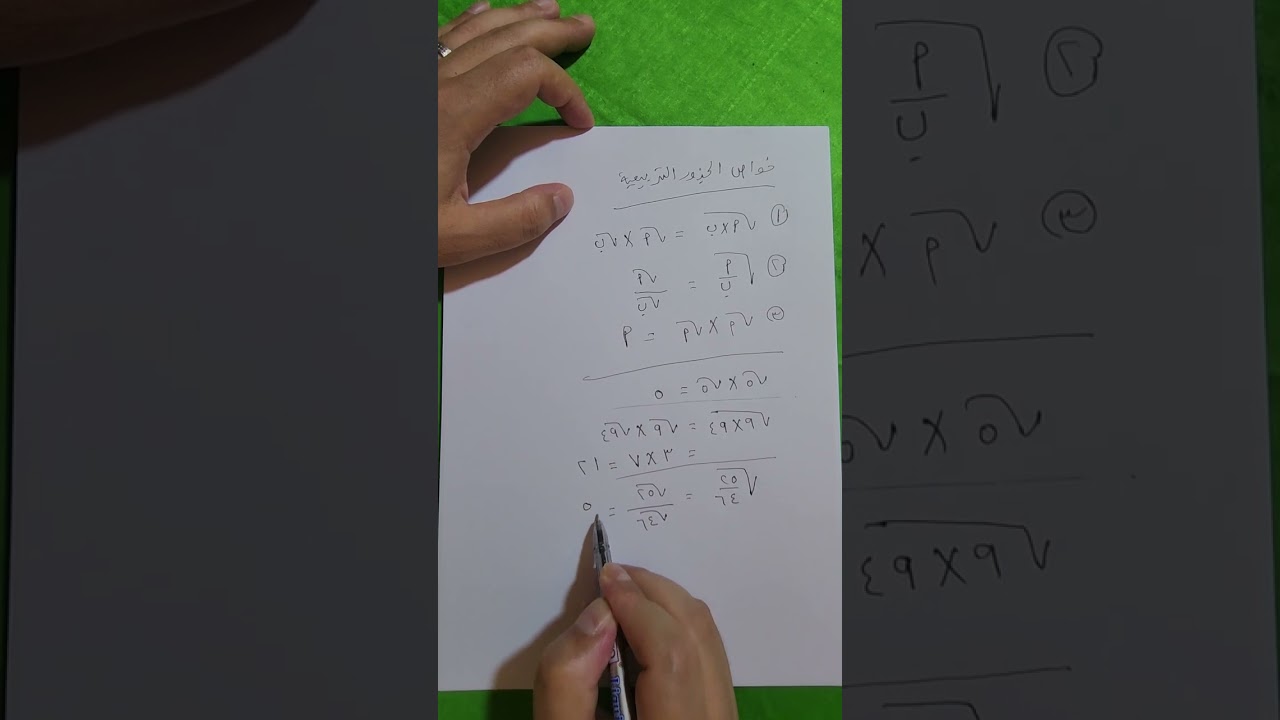 خواص الجذور التربيعية
① √(أ×ب) = √أ × √ب
② √(أ/ب) = √أ / √ب
③ √أ × √أ = أ
√٥ × √٥ = ٥
√(٩×٤٩) = √٩ × √٤٩
= ٣ × ٧ = ٢١
√(٢٥/٦٤) = √٢٥ / √٦٤ = ٥